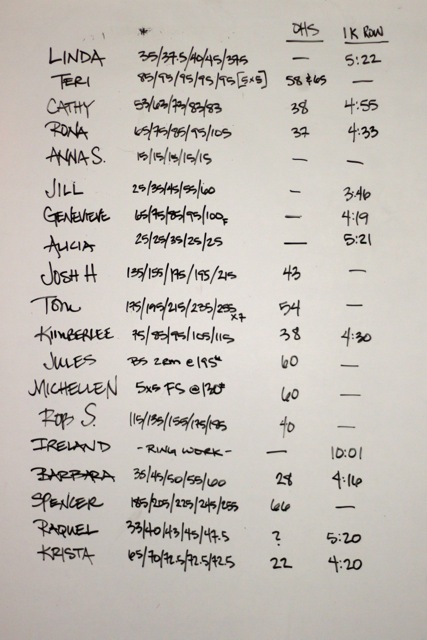 * OHS 1K ROW
LINDA 35/37.5/40/45/37.5 — 5:22
TERI 85/95/95/95/95 [5x5] 58 & 65 —
CATHY 53/63/73/83/83 38 4:55
RONA 65/75/85/95/105 37 4:33
ANNA S. 15/15/15/15/15 — —
JILL 25/35/45/55/60 — 3:46
GENEVIEVE 65/75/85/95/100F — 4:19
ALICIA 25/25/35/25/25 — 5:21
JOSH H 135/155/175/195/215 43 —
TOM 175/195/215/235/255 x7 54 —
KIIMBERLEE 75/85/95/105/115 38 4:30
JULES BS @195# 60 —
MICHELLEN 5x5 FS @130# 60 —
ROB S. 115/135/155/175/185 40 —
IRELAND - RING WORK - — 10:01
BARBARA 35/45/50/55/60 28 4:16
SPENCER 185/205/225/245/255 66 —
RAQUEL 33/40/43/45/47.5 ? 5:20
KRISTA 65/70/72.5/72.5/72.5 22 4:20